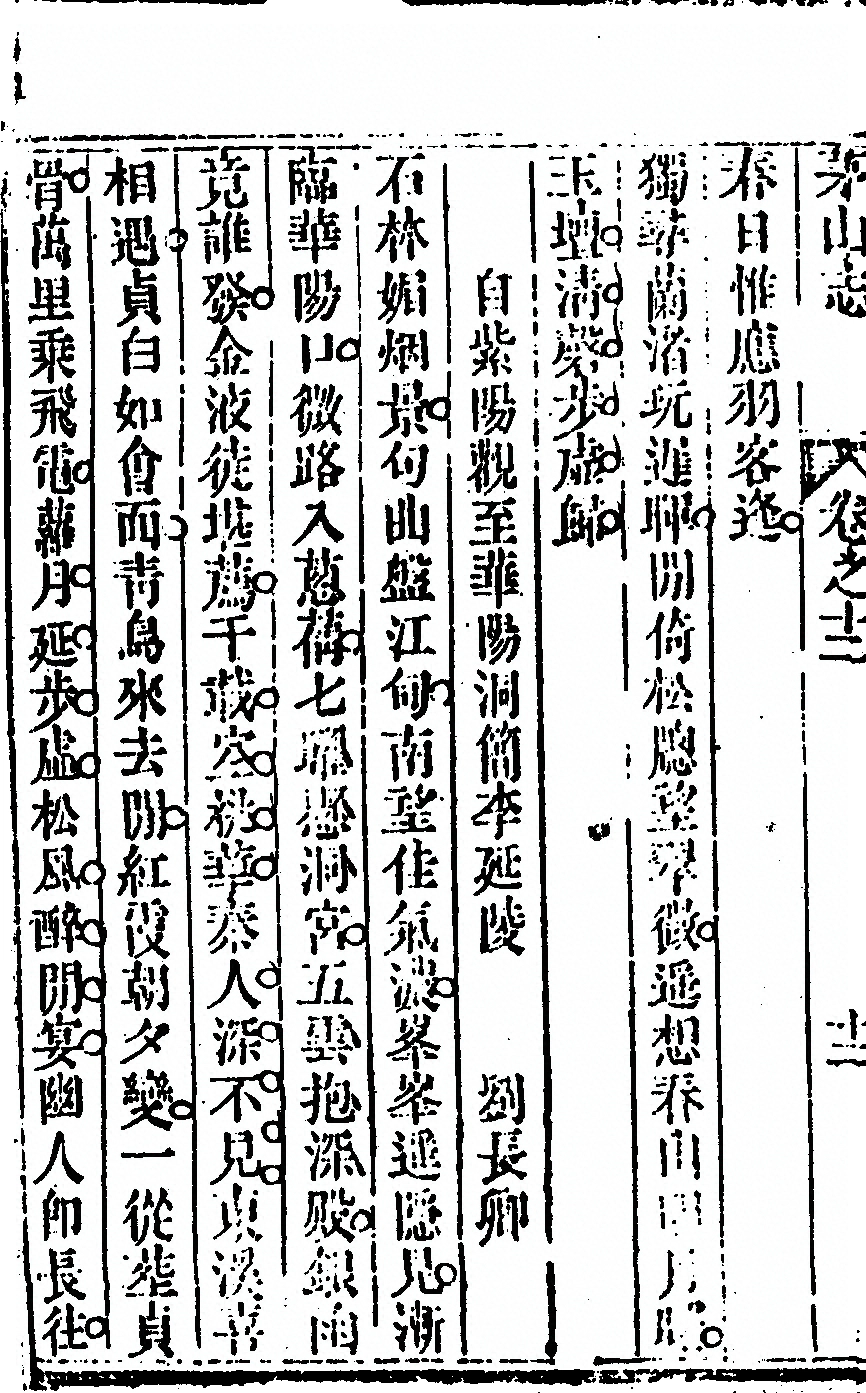 茅山志 卷之十二 十二
春日惟應羽客逢
獨尋蘭渚玩遲暉閒倚松牕望翠微遥想春山明月
玉壇清磬步虛歸
自紫陽觀至華陽洞簡李延陵 劉長卿
石林媚烟景句曲盤江甸南望佳氣濃峯峯遥隱見漸
臨華陽口微路入葱蒨七曜懸洞宮五雲抱深殿銀函
竟誰發金液徒堪薦千載空桃華秦人深不見東溪喜
相遇貞白如會面青鳥來去閒紅霞朝夕變一從貞
骨萬里乘飛電蘿月延步虛松風醉閒宴幽人即長往